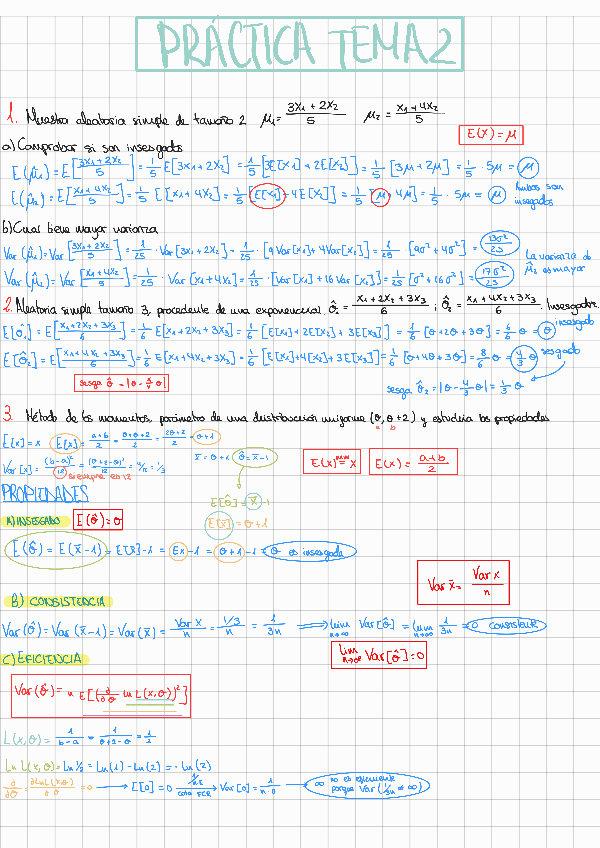 PRÁCTICA TEMA 2
1. Muestra aleatoria simple de tamaño 2 μ̂₁ = (3X₁ + 2X₂)/5 μ̂₂ = (X₁ + 4X₂)/5
E(X) = μ
a) Comprobar si son insesgados
E(μ̂₁) = E[(3X₁+2X₂)/5] = 1/5 E[3X₁ + 2X₂] = 1/5 [3E[X₁] + 2E[X₂]] = 1/5 [3μ + 2μ] = 1/5 · 5μ = μ
E(μ̂₂) = E[(X₁+4X₂)/5] = 1/5 E[X₁ + 4X₂] = 1/5 [E[X₁] + 4E[X₂]] = 1/5 [μ + 4μ] = 1/5 · 5μ = μ Ambos son insegados
b) Cual tiene mayor varianza
Var(μ̂₁) = Var[(3X₁+2X₂)/5] = 1/25 · Var[3X₁ + 2X₂] = 1/25 · [9Var[X₁] + 4Var[X₂]] = 1/25 [9σ² + 4σ²] = 13σ²/25
Var(μ̂₂) = Var[(X₁+4X₂)/5] = 1/25 · Var[X₁ + 4X₂] = 1/25 · [Var[X₁] + 16Var[X₂]] = 1/25 [σ² + 16σ²] = 17σ²/25
La varianza de μ̂₂ es mayor
2. Aleatoria simple tamaño 3, procedente de una exponencial. θ̂₂ = (X₁ + 2X₂ + 3X₃)/6 ; θ̂₂ = (X₁ + 4X₂ + 3X₃)/6. Insesgados.
E[θ̂₁] = E[(X₁+2X₂+3X₃)/6] = 1/6 E[X₁ + 2X₂ + 3X₃] = 1/6 [E[X₁] + 2E[X₂] + 3E[X₃]] = 1/6 [θ + 2θ + 3θ] = 6/6 θ = θ insesgado
E[θ̂₂] = E[(X₁+4X₂+3X₃)/6] = 1/6 E[X₁ + 4X₂ + 3X₃] = 1/6 [E[X₁] + 4[X₂] + 3E[X₃]] = 1/6 [θ + 4θ + 3θ] = 8/6 θ = 4/3 θ sesgado
sesga θ̂ = |θ - 4/3 θ|
sesga θ̂₂ = |θ - 4/3 θ| = 1/3 θ
3. Método de los momentos, parámetro de una distribución uniforme (θ, θ+2) y estudia las propiedades
a b
E[x] = x E[x] = (a+b)/2 = (θ+θ+2)/2 = (2θ+2)/2 = θ+1
x̄ = θ+1 θ̂ = x̄-1
Var[x] = (b-a)²/12 = (θ+2-θ)²/12 = 4/12 = 1/3
siempre es 12
E(x) = x̄ E(x) = (a+b)/2
PROPIEDADES
E[θ̂] = x̄ - 1
E[x̄] = θ+1
A) INSESGADO E(θ̂) = θ
E(θ̂) = E(x̄-1) = E[x̄]-1 = Ex-1 = θ+1-1 = θ es insesgado
Var x̄ = Var x / n
B) CONSISTENCIA
Var(θ̂) = Var(x̄-1) = Var(x̄) = Var x / n = 1/3 / n = 1/3n ⟹ lim n→∞ Var[θ̂] = lim n→∞ 1/3n = 0 consistente
lim n→∞ Var[θ̂] = 0
C) EFICIENCIA
Var(θ̂) = n E[(∂/∂θ ln L(x,θ))²]
L(x,θ) = 1/(b-a) = 1/(θ+2-θ) = 1/2
Ln L(x,θ) = Ln 1/2 = Ln(1) - Ln(2) = - Ln(2)
∂/∂θ = ∂LnL(x,θ)/∂θ = 0 → E[0] = 0 → cota FCR Var[θ] = 1/(n·0) → ∞ no es eficiente porque Var (1/3n ≠ ∞)